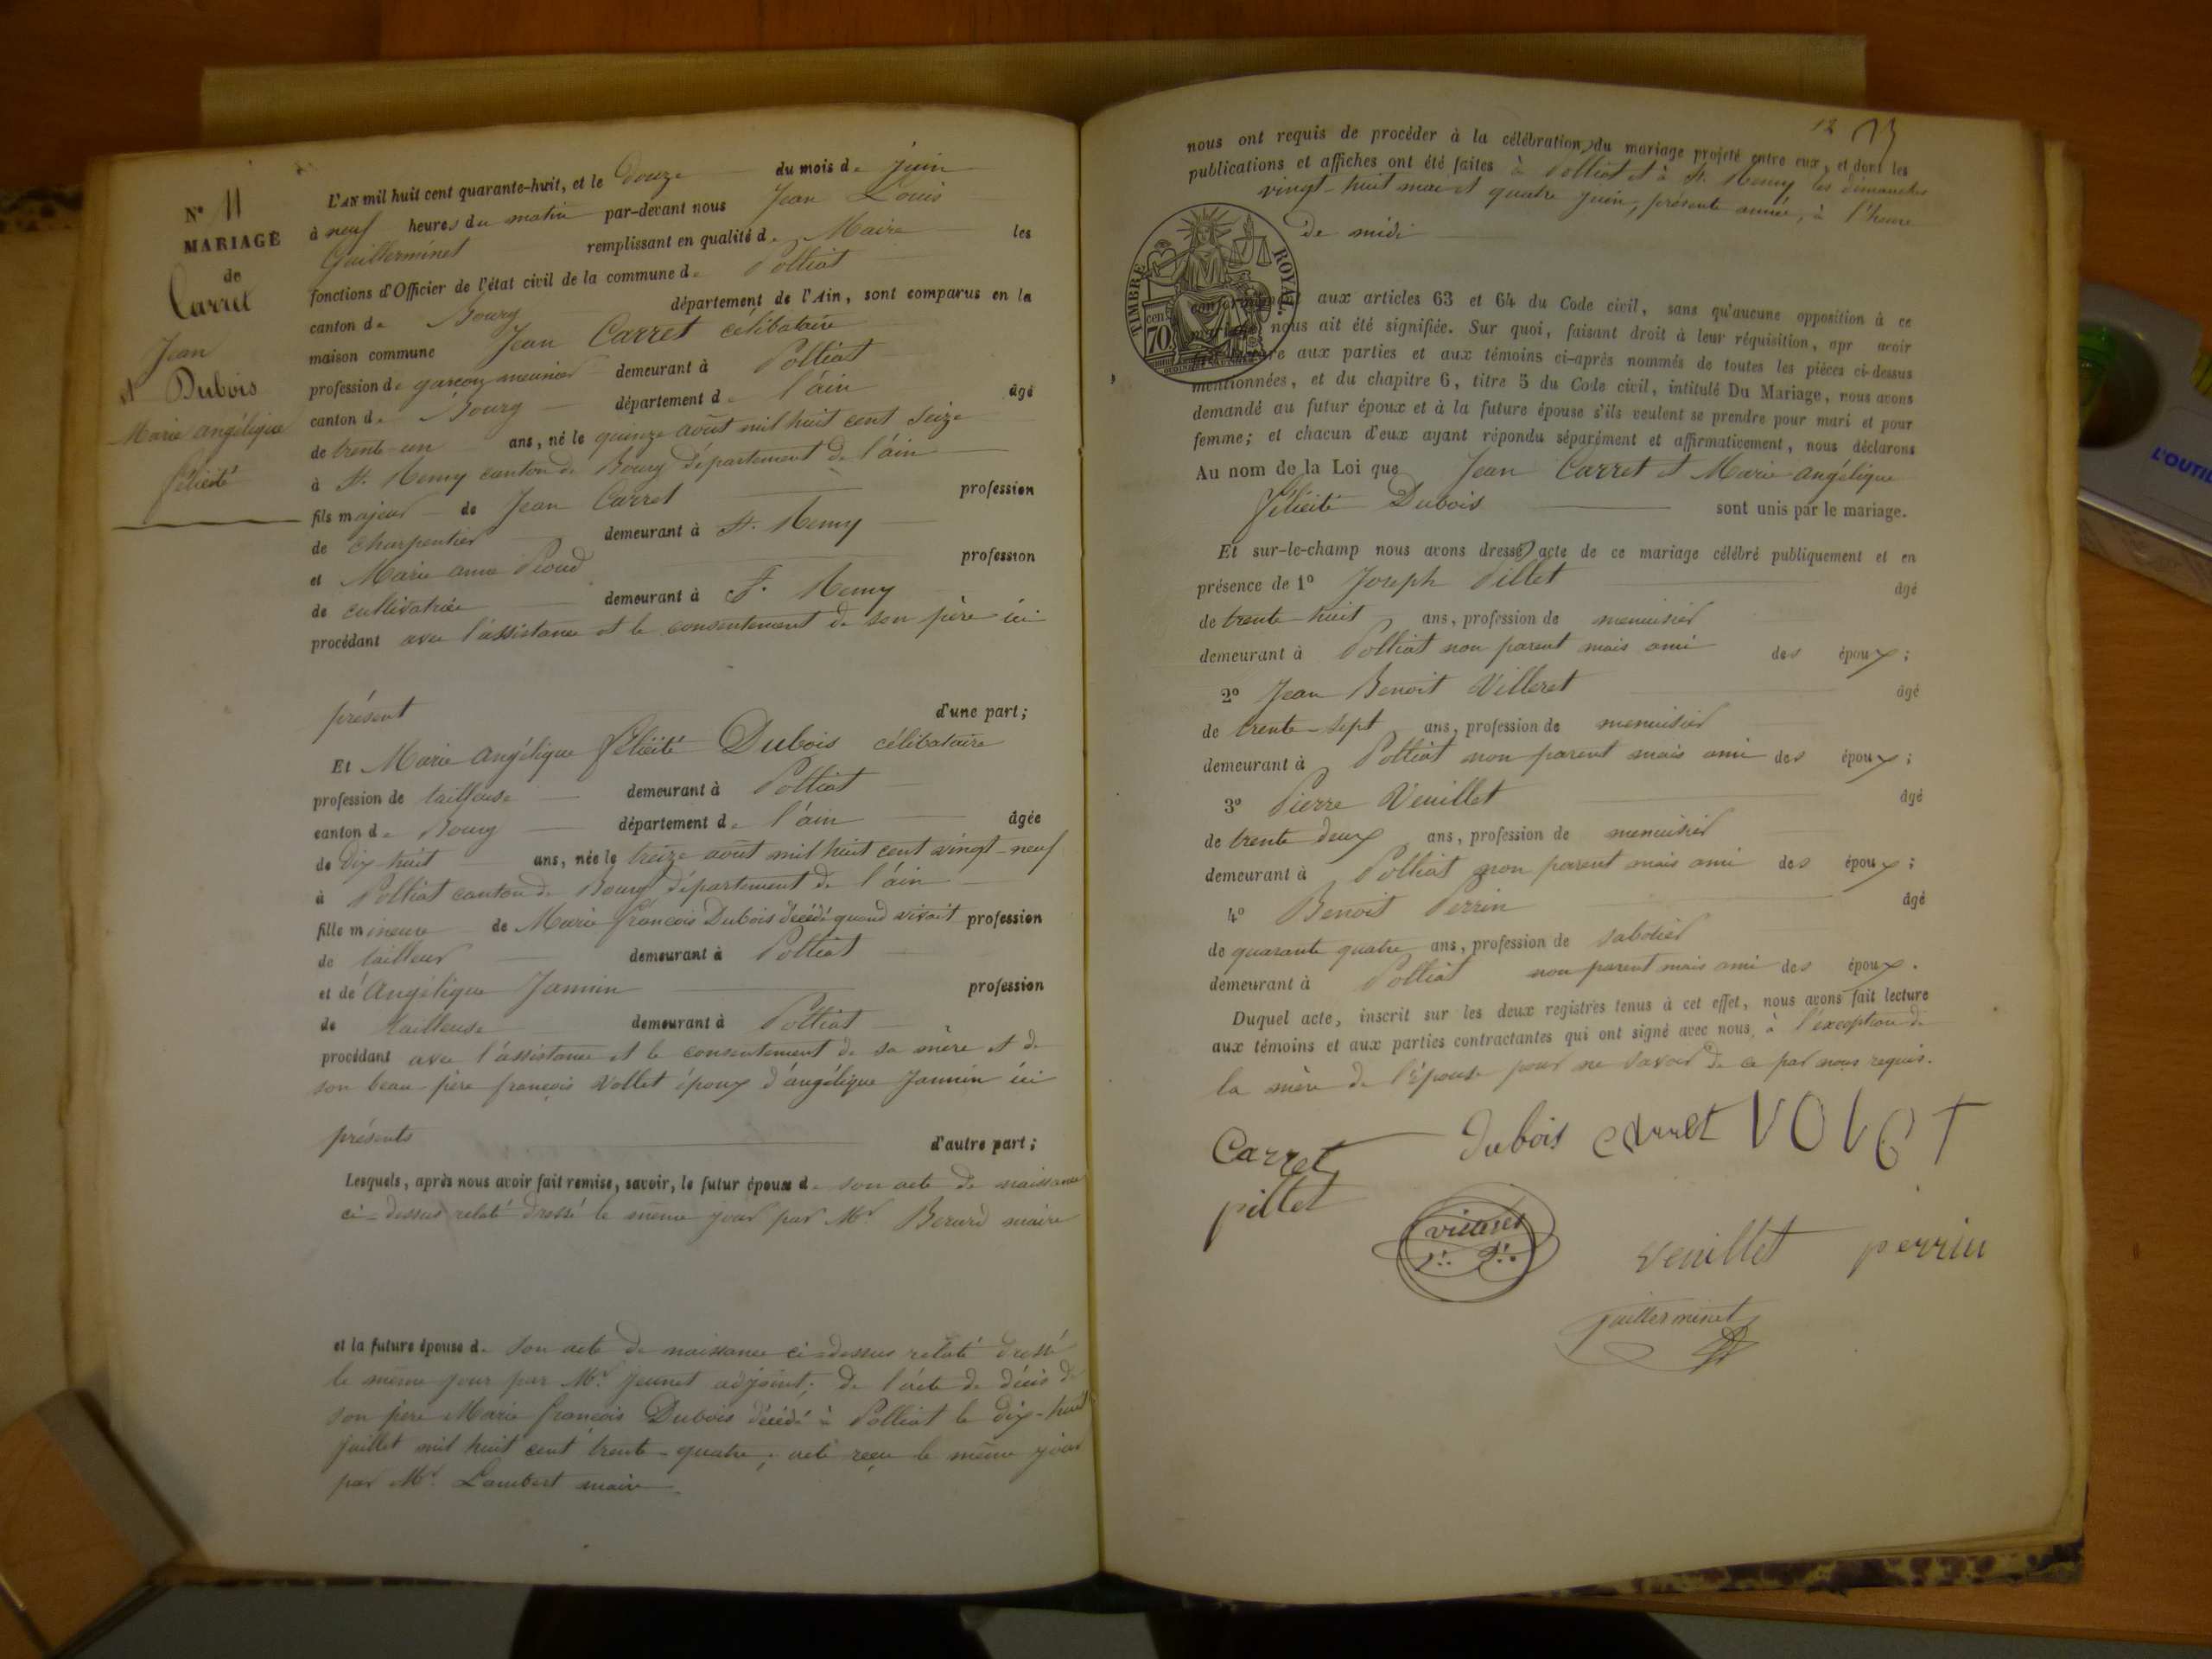 N° 11
MARIAGE
de
Carret
Jean
et Dubois
Marie angélique
félicité
L'AN mil huit cent quarante-huit, et le douze du mois de juin
à neuf heures du matin par-devant nous Jean Louis
Guillerminet remplissant en qualité de Maire les
fonctions d'Officier de l'état civil de la commune de Polliat
canton de Bourg département de l'Ain, sont comparus en la
maison commune Jean Carret célibataire
profession de garçon meunier demeurant à Polliat
canton de Bourg département de l'ain âgé
de trente-un ans, né le quinze août mil huit cent seize
à St. Remy canton de Bourg département de l'ain
fils majeur de Jean Carret profession
de charpentier demeurant à St. Remy
et Marie anne profession
de cultivatrice demeurant à St. Remy
procédant avec l'assistance et le consentement de son père ici
présent d'une part;
Et Marie angélique félicité Dubois célibataire
profession de tailleuse demeurant à Polliat
canton de Bourg département de l'ain âgée
de dix-huit ans, née le treize août mil huit cent vingt-neuf
à Polliat canton de Bourg département de l'ain
fille mineure de Marie françois Dubois décédé quand vivait profession
de tailleur demeurant à Polliat
et de Angélique Jannin profession
de tailleuse demeurant à Polliat
procédant avec l'assistance et le consentement de sa mère et de
son beau-père françois Vollet époux d'angélique Jannin ici
présents d'autre part;
Lesquels, après nous avoir fait remise, savoir, le futur époux de son acte de naissance
ci-dessus relaté dressé le même jour par Mr. Berard maire
et la future épouse de son acte de naissance ci-dessus relaté dressé
le même jour par Mr. Jeunet adjoint; de l'acte de décès de
son père Marie françois Dubois décédé à Polliat le dix-huit
juillet mil huit cent trente-quatre, acte reçu le même jour
par Mr. Lambert maire.
12
nous ont requis de procéder à la célébration du mariage projeté entre eux, et dont les
publications et affiches ont été faites à Polliat et à St. Remy les dimanches
vingt-huit mai et quatre juin, présente année, à l'heure
de midi
TIMBRE ROYAL
cen 70
conformément aux articles 63 et 64 du Code civil, sans qu'aucune opposition à ce
mariage nous ait été signifiée. Sur quoi, faisant droit à leur réquisition, apr avoir
fait lecture aux parties et aux témoins ci-après nommés de toutes les pièces ci-dessus
mentionnées, et du chapitre 6, titre 5 du Code civil, intitulé Du Mariage, nous avons
demandé au futur époux et à la future épouse s'ils veulent se prendre pour mari et pour
femme; et chacun d'eux ayant répondu séparément et affirmativement, nous déclarons
Au nom de la Loi que Jean Carret et Marie angélique
félicité Dubois sont unis par le mariage.
Et sur-le-champ nous avons dressé acte de ce mariage célébré publiquement et en
présence de 1° Joseph Pillet âgé
de trente-huit ans, profession de menuisier
demeurant à Polliat non parent mais ami des époux;
2° Jean Benoit Villeret âgé
de trente-sept ans, profession de menuisier
demeurant à Polliat non parent mais ami des époux;
3° Pierre Veuillet âgé
de trente deux ans, profession de menuisier
demeurant à Polliat non parent mais ami des époux;
4° Benoit Perrin âgé
de quarante quatre ans, profession de sabotier
demeurant à Polliat non parent mais ami des époux.
Duquel acte, inscrit sur les deux registres tenus à cet effet, nous avons fait lecture
aux témoins et aux parties contractantes qui ont signé avec nous, à l'exception de
la mère de l'épouse pour ne savoir de ce par nous requis.
Carret Dubois carret VOLET
pillet
veuillet perrin
guillerminet
L'OUTIL